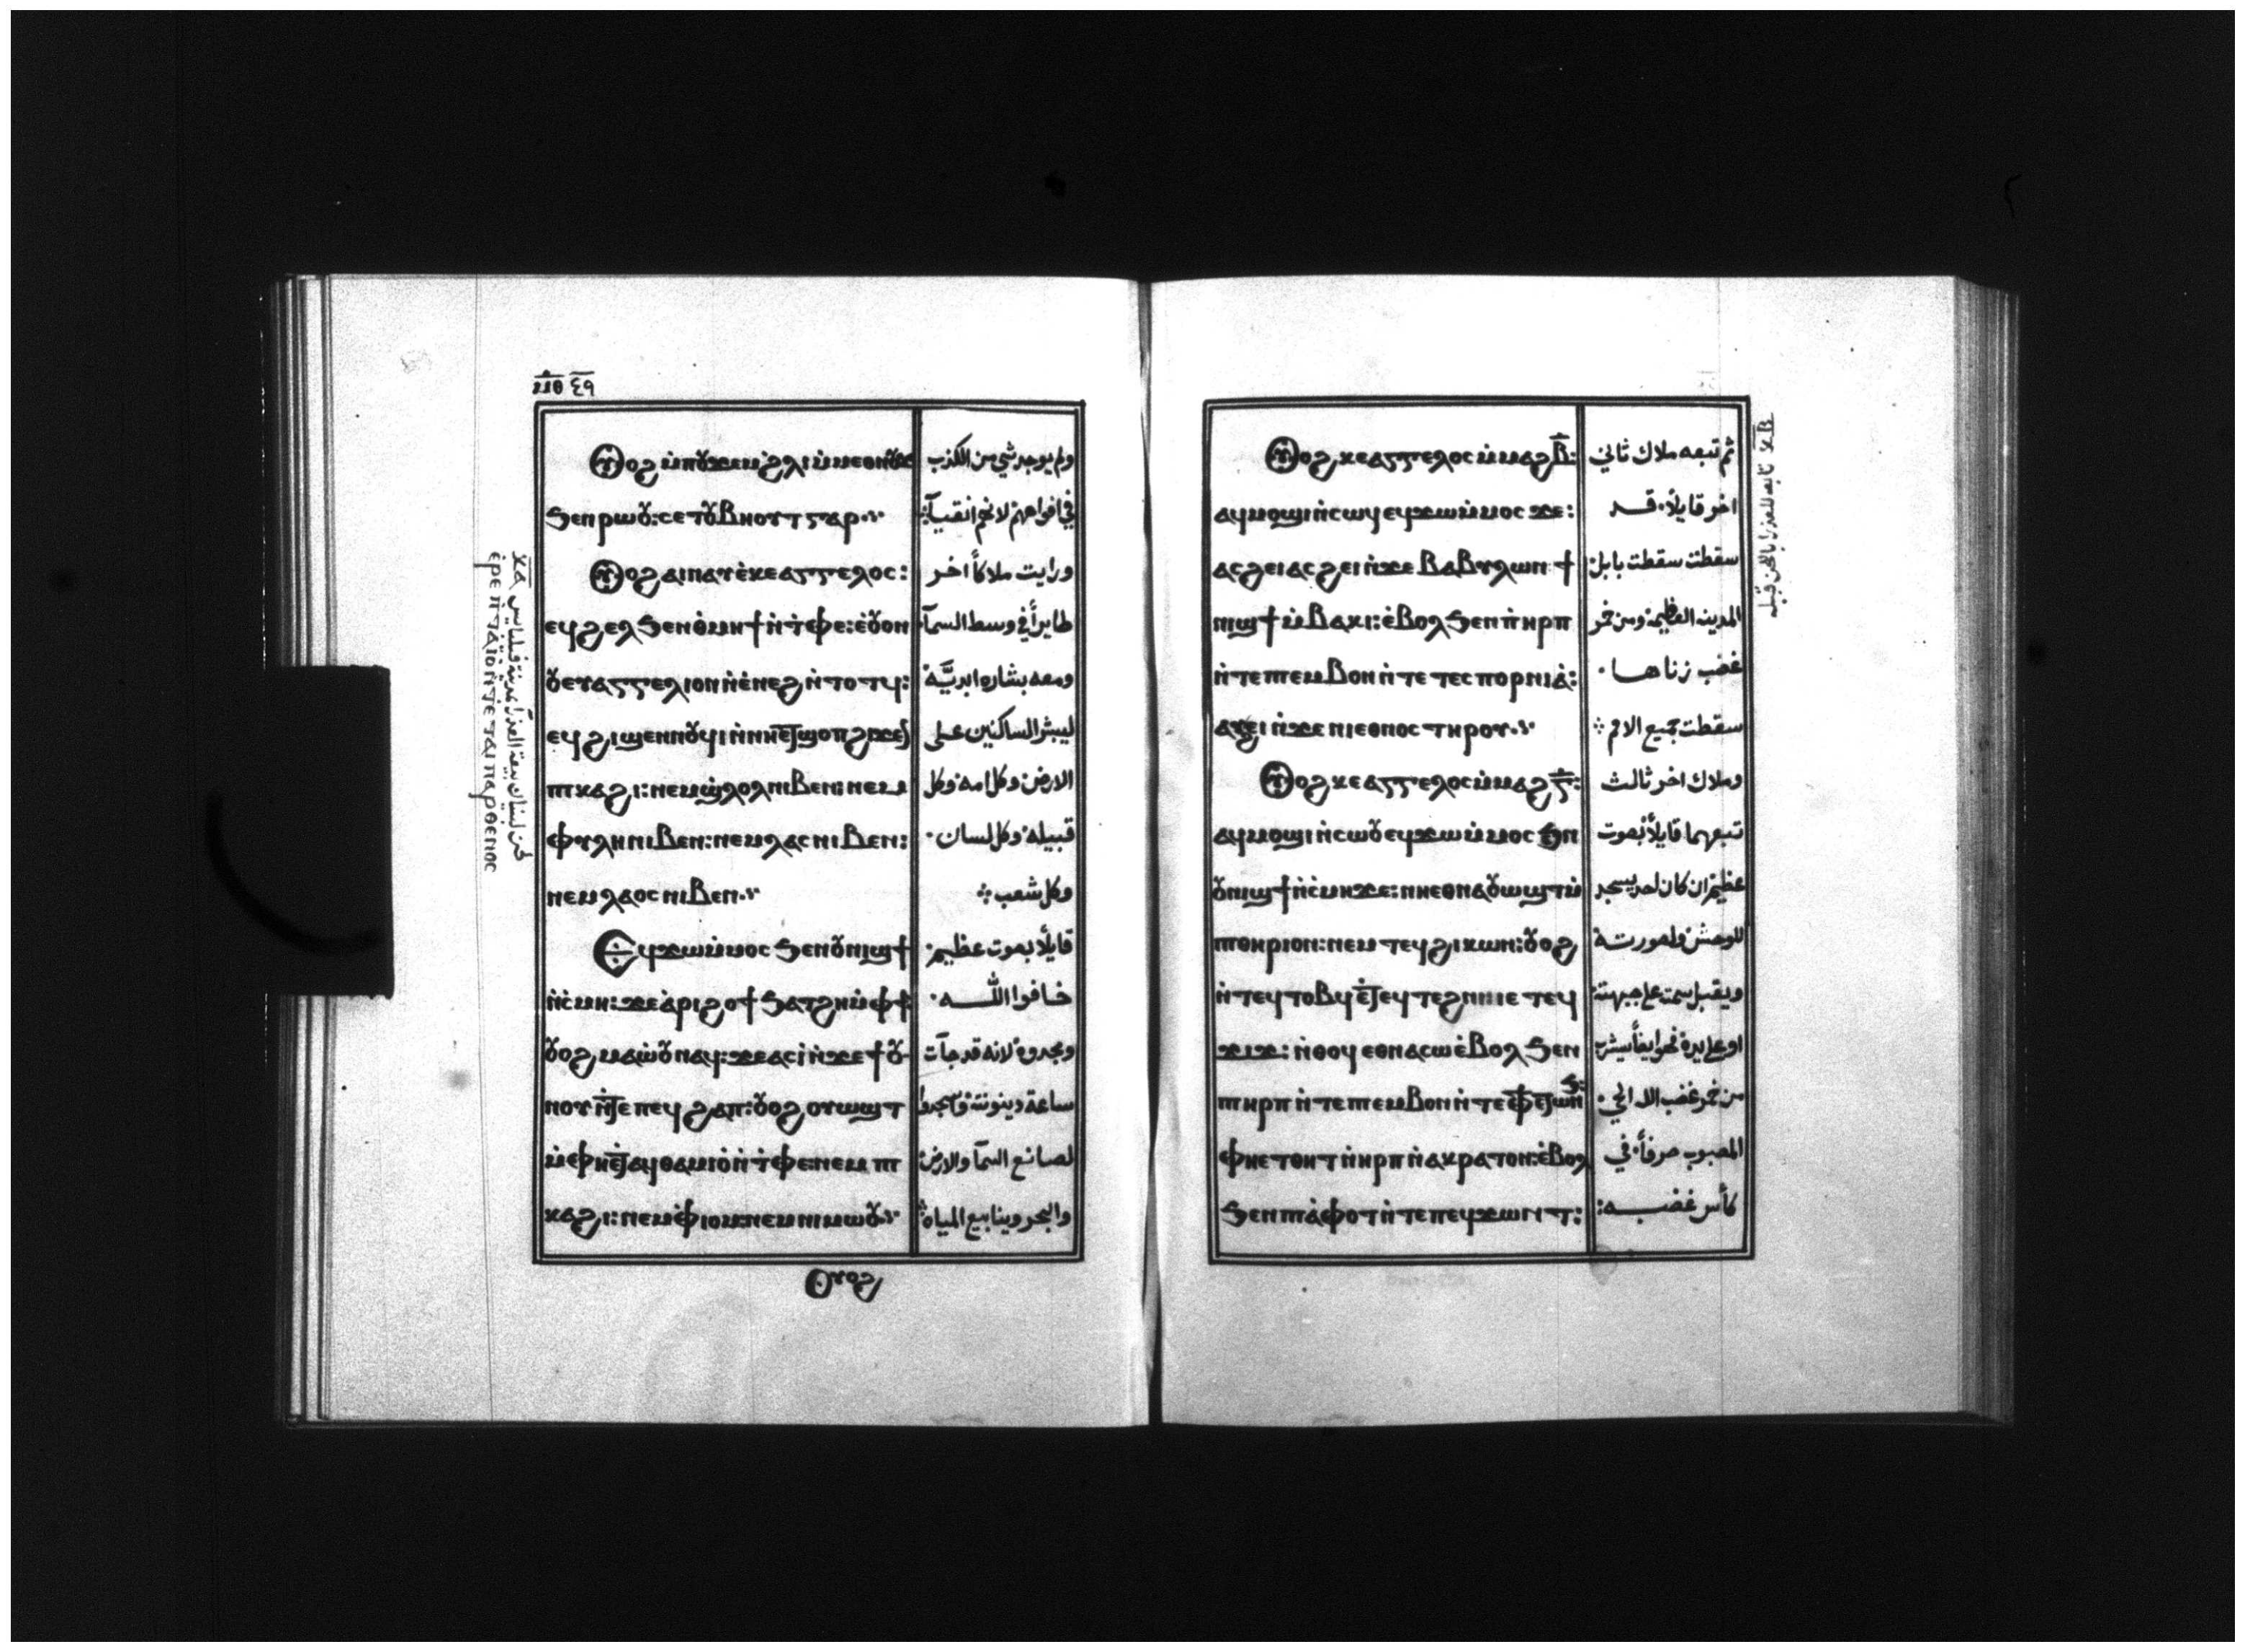 ⲙ̅ⲑ̅ ٤٩
Ⲟⲩⲟϩ ⲙ̀ⲡⲟⲩϫⲉⲙ ϩ̀ⲗⲓ ⲙ̀ⲙⲉⲑⲛⲟⲩϫ
ϧⲉⲛ ⲣⲱⲟⲩ: ⲥⲉⲧⲟⲩⲃⲏⲟⲩⲧ ⲅⲁⲣ
Ⲟⲩⲟϩ ⲁⲓⲛⲁⲩ ⲉ̀ⲕⲉⲁⲅⲅⲉⲗⲟⲥ:
ⲉϥϩⲉⲗ ϧⲉⲛ ⲑ̀ⲙⲏϯ ⲛ̀ⲧ̀ⲫⲉ: ⲉ̀ⲟⲩⲟⲛ
ⲟⲩⲉⲩⲁⲅⲅⲉⲗⲓⲟⲛ ⲛ̀ⲉ̀ⲛⲉϩ ⲛ̀ⲧⲟⲧϥ:
ⲉϥϩⲓϣⲉⲛⲛⲟⲩϥⲓ ⲛ̀ⲛⲏⲉⲧϣⲟⲡ ϩⲓϫⲉⲛ
ⲡⲓⲕⲁϩⲓ: ⲛⲉⲙ ϣ̀ⲗⲟⲗ ⲛⲓⲃⲉⲛ: ⲛⲉⲙ
ⲫⲩⲗⲏ ⲛⲓⲃⲉⲛ: ⲛⲉⲙ ⲗⲁⲥ ⲛⲓⲃⲉⲛ:
ⲛⲉⲙ ⲗⲁⲟⲥ ⲛⲓⲃⲉⲛ
Ⲉϥϫⲱ ⲙ̀ⲙⲟⲥ ϧⲉⲛ ⲟⲩⲛⲓϣϯ
ⲛ̀ⲥ̀ⲙⲏ: ϫⲉ ⲁ̀ⲣⲓϩⲟϯ ϧⲁⲧϩⲏ ⲙ̀ⲫϯ
ⲟⲩⲟϩ ⲙⲁⲱ̀ⲟⲩ ⲛⲁϥ: ϫⲉ ⲁⲥⲓ̀ ⲛ̀ϫⲉ ϯⲟⲩ
ⲛⲟⲩ ⲛ̀ⲧⲉ ⲡⲉϥϩⲁⲡ: ⲟⲩⲟϩ ⲟⲩⲱϣⲧ
ⲙ̀ⲫⲏⲉⲧⲁϥⲑⲁⲙⲓⲟ̀ ⲛ̀ⲧ̀ⲫⲉ: ⲛⲉⲙ ⲡⲓ
ⲕⲁϩⲓ: ⲛⲉⲙ ⲫ̀ⲓⲟⲙ: ⲛⲉⲙ ⲛⲓⲙⲱⲟⲩ
Ⲟⲩⲟϩ
ولم يوجد شي من الكذب
في افواههم لانهم انقيآء
ورايت ملاكاً اخر
طايراً في وسط السمآء
ومعه بشاره ابديَّة
ليبشر الساكنين على
الارض وكل امه وكل
قبيلة وكل لسان
وكل شعب
قايلاً بصوت عظيم
خافوا الله
ومجدوه لانه قد جآت
ساعة دينونته واسجدوا
لصانع السمآ والارض
والبحر وينابيع المياه
ⲕ̅ⲁ̅
ⲉ̀ⲣⲉ ⲡ̀ⲧⲁⲓⲟ ⲛ̀ⲧⲉ ⲧⲁⲓⲡⲁⲣⲑⲉⲛⲟⲥ
Ⲟⲩⲟϩ ⲕⲉⲁⲅⲅⲉⲗⲟⲥ ⲙ̀ⲙⲁϩⲃ̅:
ⲁϥⲙⲟϣⲓ ⲛ̀ⲥⲱϥ ⲉϥϫⲱ ⲙ̀ⲙⲟⲥ ϫⲉ:
ⲁⲥϩⲉⲓ ⲁⲥϩⲉⲓ ⲛ̀ϫⲉ Ⲃⲁⲃⲩⲗⲱⲛ ϯ
ⲛⲓϣϯ ⲙ̀ⲃⲁⲕⲓ: ⲉ̀ⲃⲟⲗ ϧⲉⲛ ⲡ̀ⲏⲣⲡ
ⲛ̀ⲧⲉ ⲡⲉⲙⲃⲟⲛ ⲛ̀ⲧⲉ ⲧⲉⲥⲡⲟⲣⲛⲓⲁ̀:
ⲁⲩϩⲉⲓ ⲛ̀ϫⲉ ⲛⲓⲉⲑⲛⲟⲥ ⲧⲏⲣⲟⲩ
Ⲟⲩⲟϩ ⲕⲉⲁⲅⲅⲉⲗⲟⲥ ⲙ̀ⲙⲁϩⲅ̅:
ⲁϥⲙⲟϣⲓ ⲛ̀ⲥⲱⲟⲩ ⲉϥϫⲱ ⲙ̀ⲙⲟⲥ ϧⲉⲛ
ⲟⲩⲛⲓϣϯ ⲛ̀ⲥ̀ⲙⲏ ϫⲉ: ⲛⲏⲉⲑⲛⲁⲟⲩⲱϣⲧ ⲙ̀
ⲡⲓⲑⲏⲣⲓⲟⲛ: ⲛⲉⲙ ⲧⲉϥϩⲓⲕⲱⲛ: ⲟⲩⲟϩ
ⲛ̀ⲧⲉϥⲧⲟⲃϥ ⲉϫⲉⲛ ⲧⲉϩⲛⲓ ⲓⲉ ⲧⲉϥ
ϫⲓϫ: ⲛ̀ⲑⲟϥ ⲉⲑⲛⲁⲥⲱ ⲉ̀ⲃⲟⲗ ϧⲉⲛ
ⲡⲓⲏⲣⲡ ⲛ̀ⲧⲉ ⲡⲉⲙⲃⲟⲛ ⲛ̀ⲧⲉ ⲫϯ ⲉⲧⲱⲛϧ:
ⲫⲏⲉⲧⲑⲏⲧ ⲛ̀ⲏⲣⲡ ⲛ̀ⲁⲕⲣⲁⲧⲟⲛ: ⲉ̀ⲃⲟⲗ
ϧⲉⲛ ⲡⲓⲁ̀ⲫⲟⲧ ⲛ̀ⲧⲉ ⲡⲉϥϫⲱⲛⲧ:
ثم تبعه ملاك ثاني
اخر قايلاً قد
سقطت سقطت بابل
المدينه العظيمة ومن خمر
غضب زناها
سقطت جميع الامم
وملاك اخر ثالث
تبعهما قايلاً بصوت
عظيم ان كان احد يسجد
للوحش ولصورته
ويقبل سمت على جبهته
او على يده فهو ايضاً يشرب
من خمر غضب الله الحي
المصبوب صرفاً في
كأس غضبه
ⲕ̅ⲃ̅